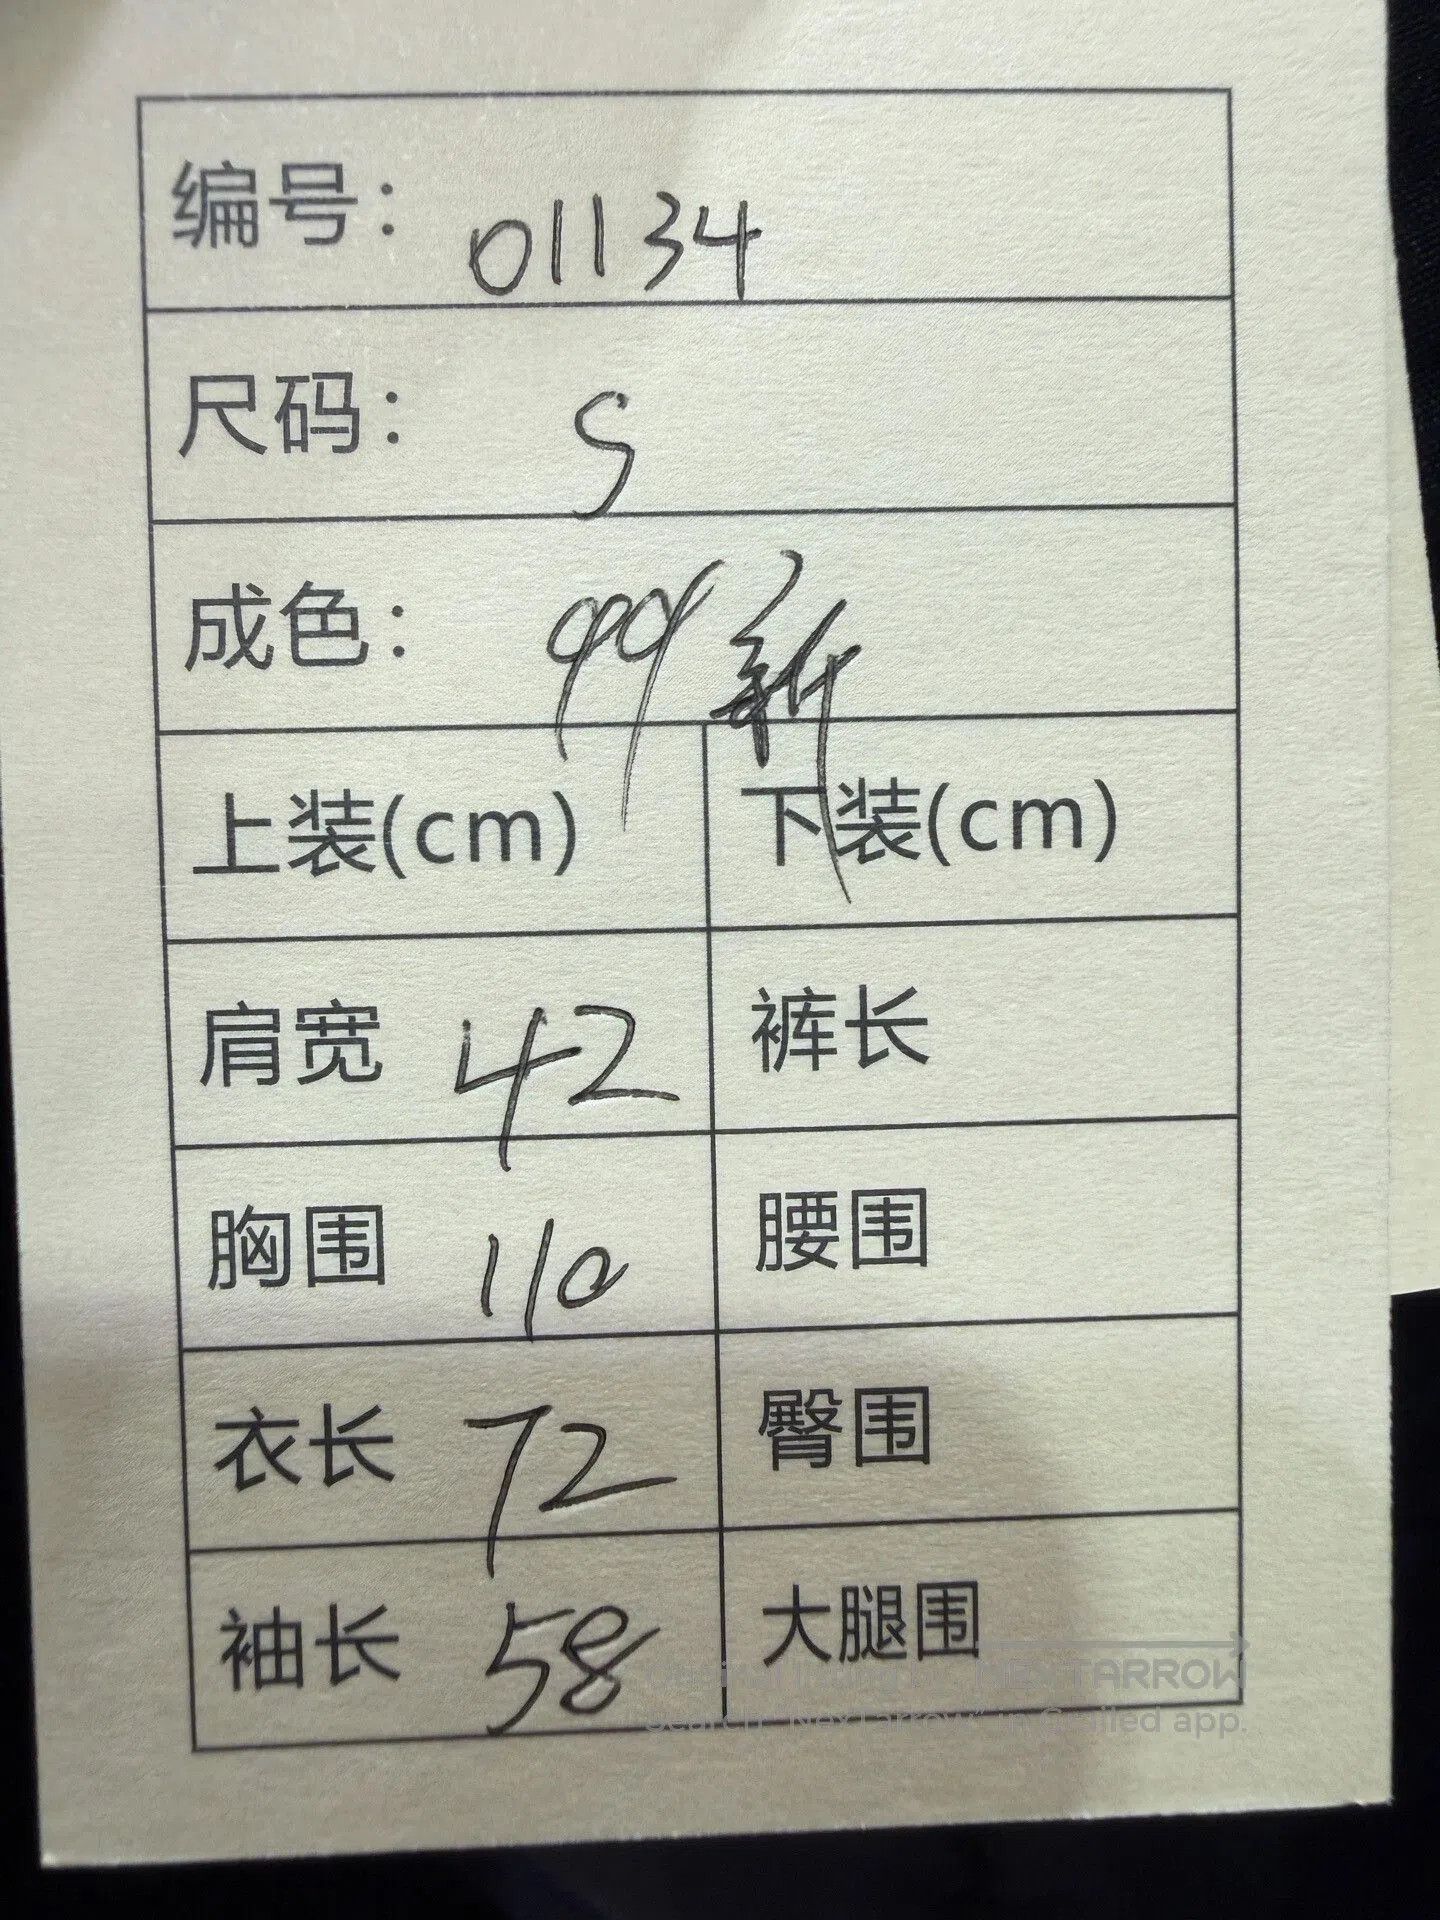 编号： 01134
尺码： S
成色： 99新
上装(cm) 下装(cm)
肩宽 42 裤长
胸围 110 腰围
衣长 72 臀围
袖长 58 大腿围
NEXTARROW
Search "NexTarrow" in Grailed app.